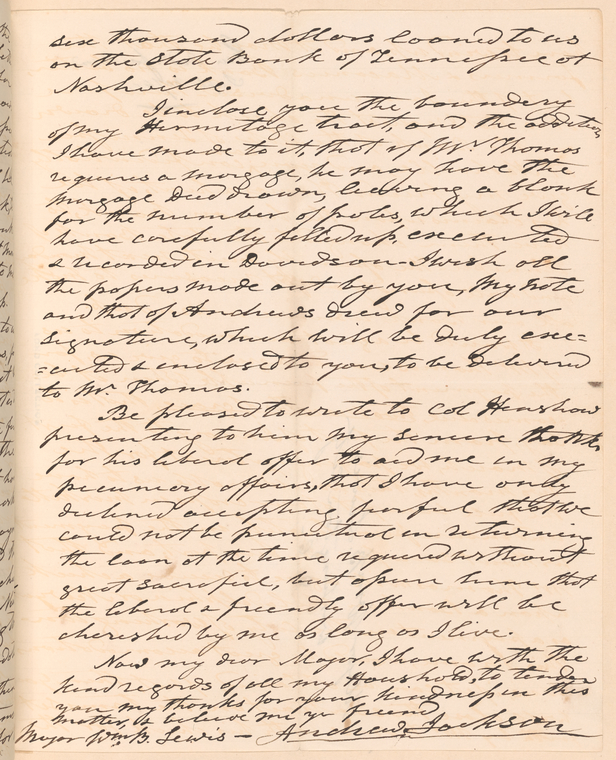 six thousand dollars loaned to us
on the State Bank of Tennessee at
Nashville.
I inclose you the boundery
of my Hermitage tract, and the addition
I have made to it, that if Mr. Thomas
requires a morgage, he may have the
morgage Deed drawn, leaving a blank
for the number of poles, which I will
have carefully filled up, executed
& recorded in Davidson - I wish all
the papers made out by you, My note
and that of Andrews drew for our
signature, which will be duly exe=
=cuted & enclosed to you, to be delivered
to Mr. Thomas.
Be pleased to write to Col Henshaw
presenting to him my sincere thanks
for his liberal offer to aid me in my
pecuniary affairs, that I have only
declined accepting, fearful that we
could not be punctual in returning
the loan at the time required without
great sacrafice, but assure him that
the liberal & friendly offer will be
cherished by me as long as I live.
Now my dear Major, I have with the
kind regards of all my Houshold, to tender
you my thanks for your kindness in this
matter, & believe me yr friend
Andrew Jackson
Major Wm. B. Lewis -